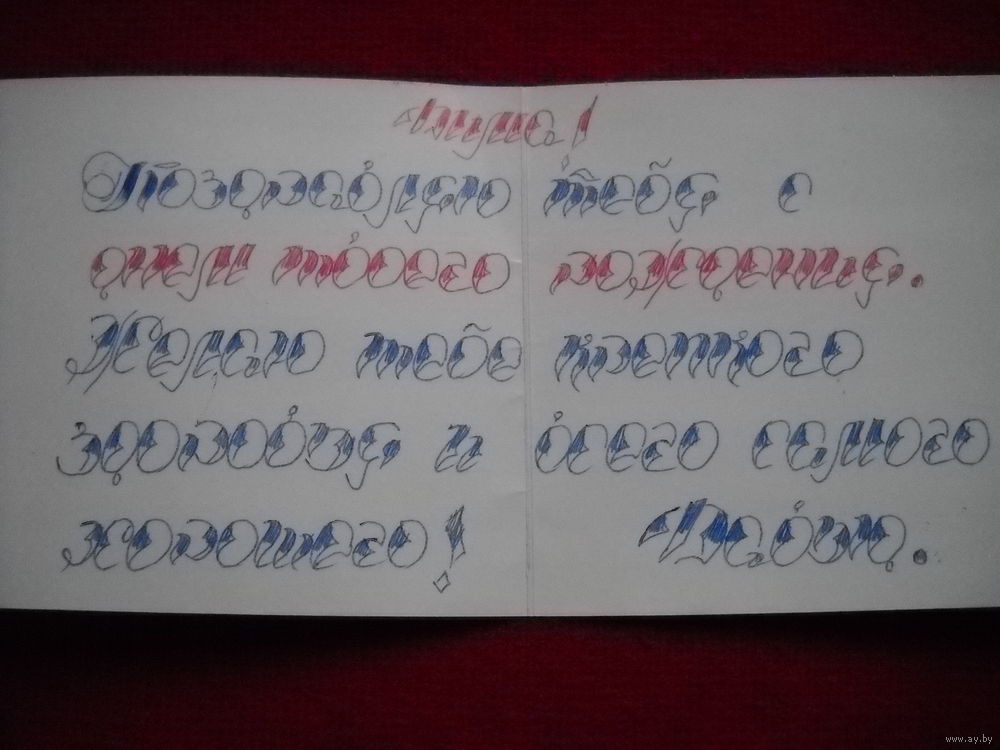 Дима!
Поздравляю тебя с
днем твоего рождения.
Желаю тебе крепкого
здоровья и всего самого
хорошего! Давид.
www.ay.by